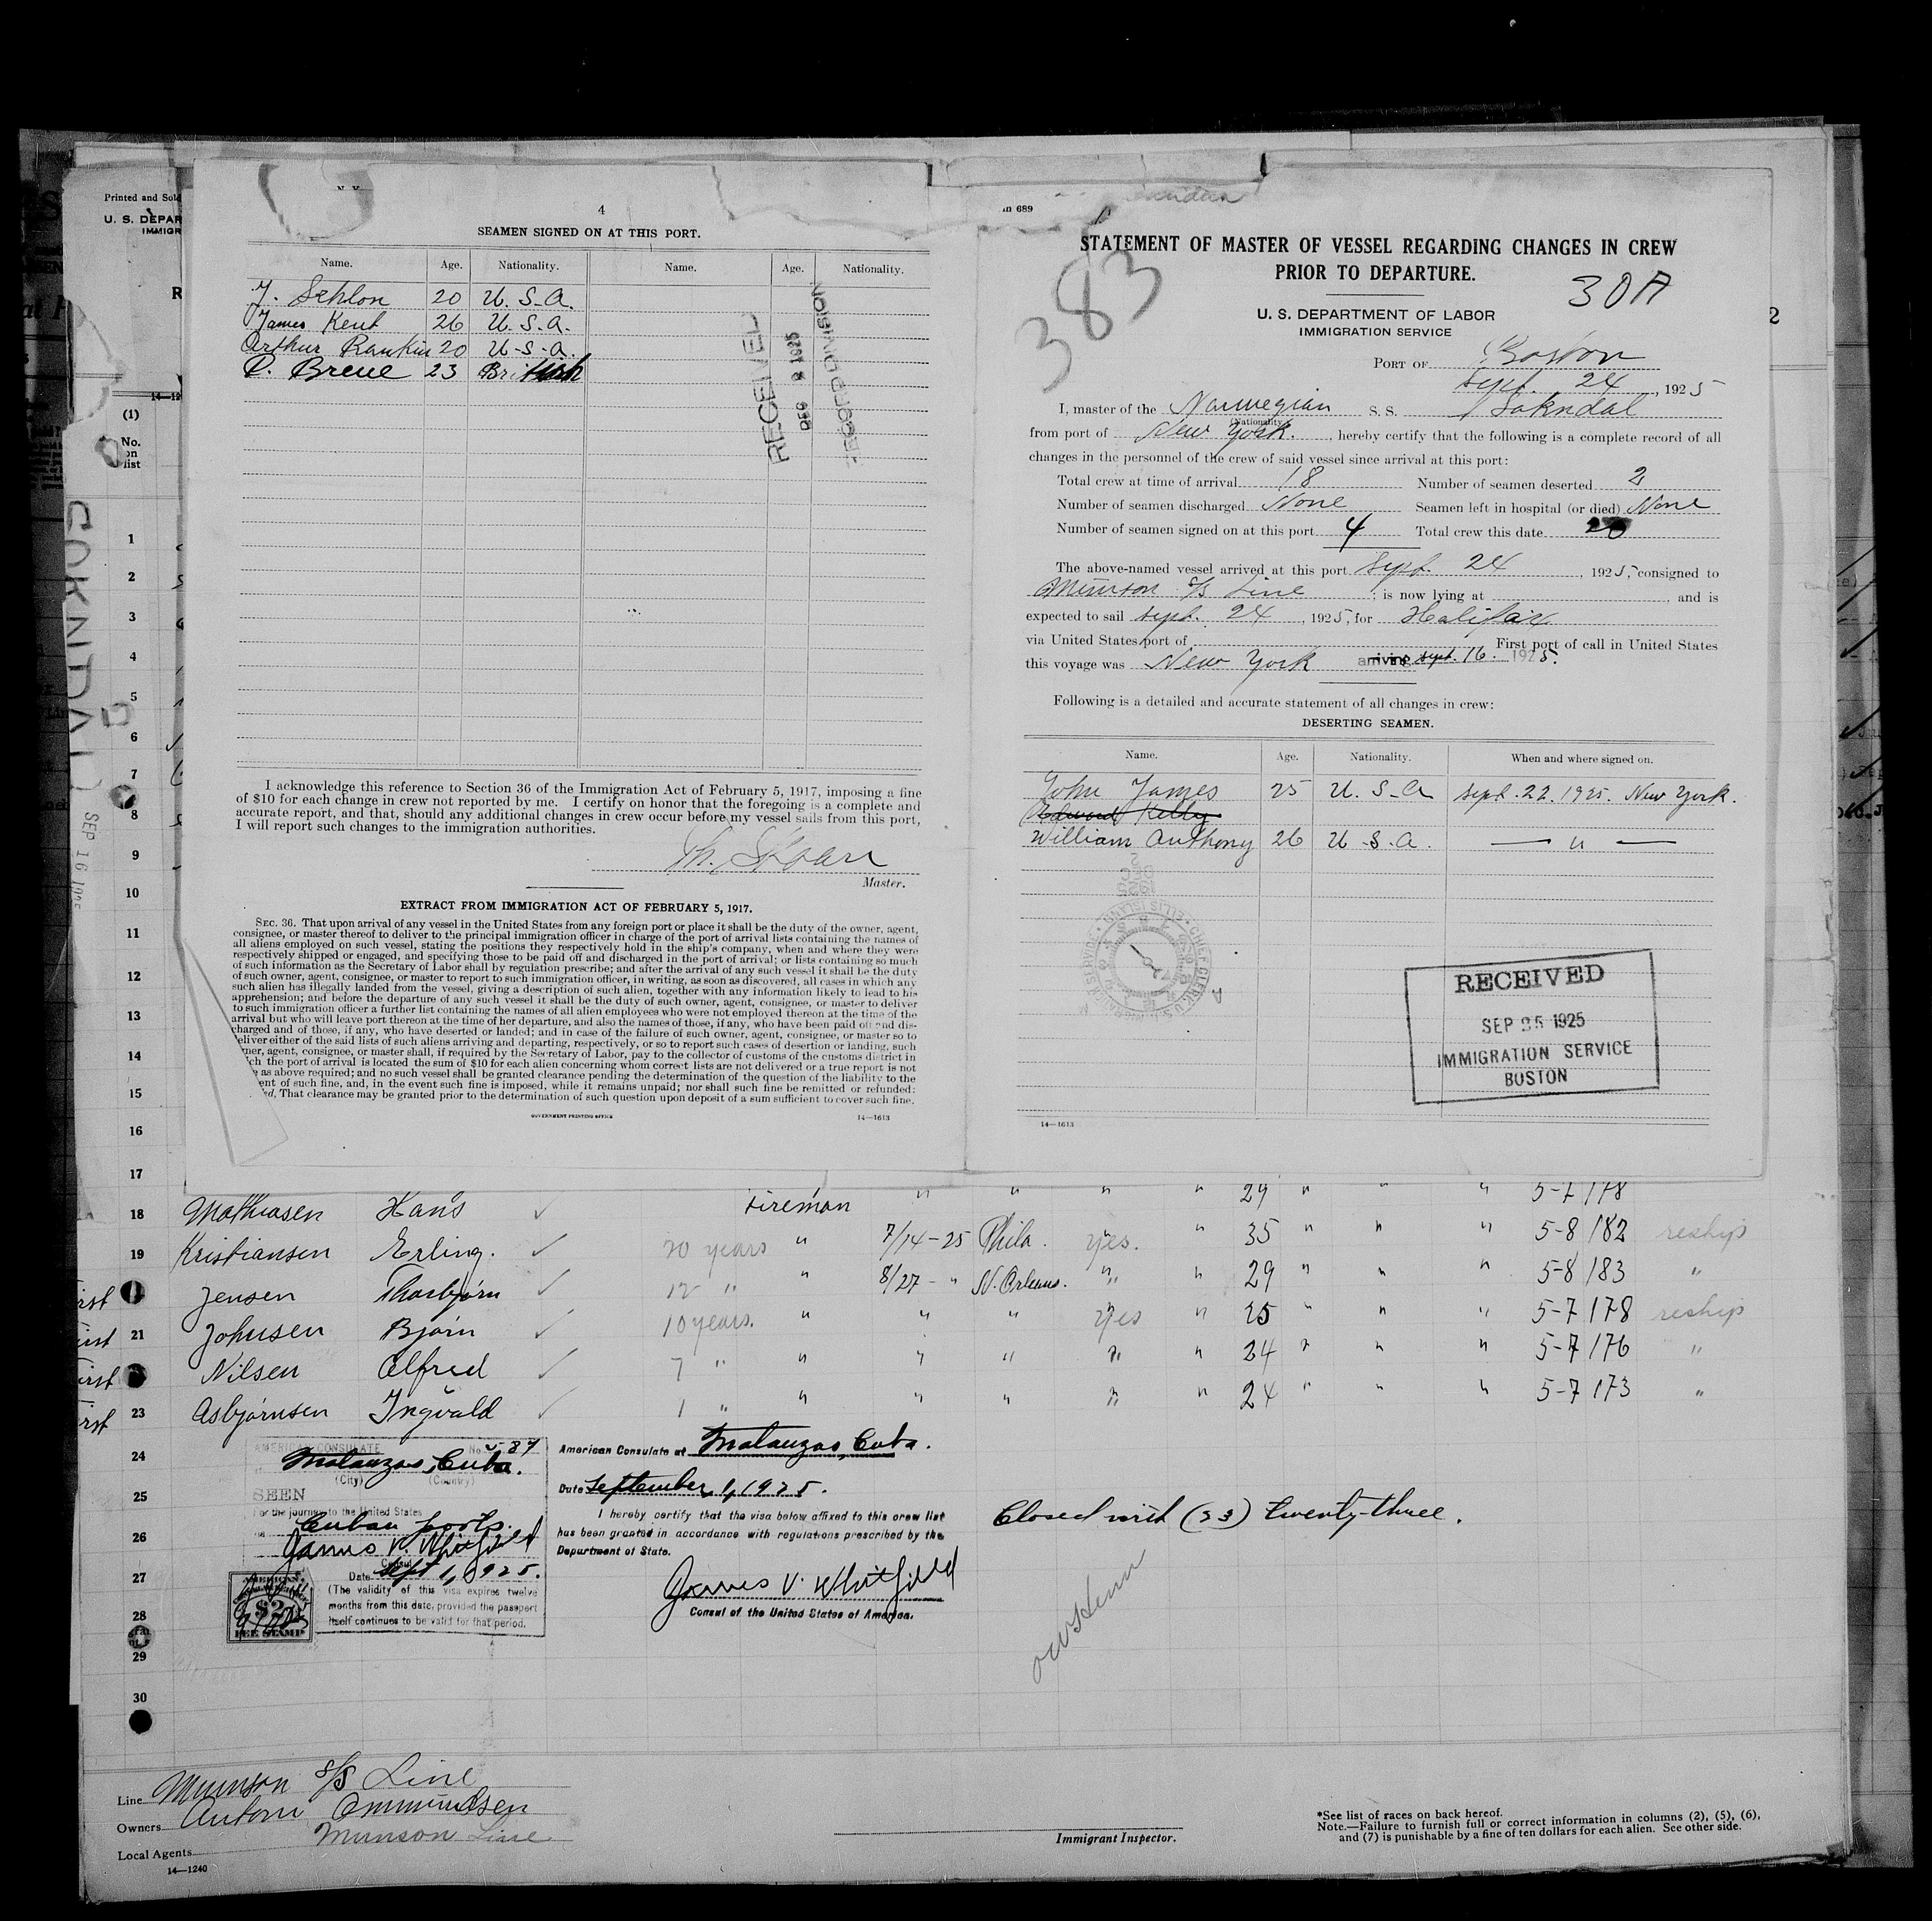 4
SEAMEN SIGNED ON AT THIS PORT.
Name. Age. Nationality. Name. Age. Nationality.
20 U. S. A.
James Kent 26 U. S. A.
Arthur Rankin 20 U. S. A.
23 British
RECEIVED
I acknowledge this reference to Section 36 of the Immigration Act of February 5, 1917, imposing a fine
of $10 for each change in crew not reported by me. I certify on honor that the foregoing is a complete and
accurate report, and that, should any additional changes in crew occur before my vessel sails from this port,
I will report such changes to the immigration authorities.
Master.
EXTRACT FROM IMMIGRATION ACT OF FEBRUARY 5, 1917.
SEC. 36. That upon arrival of any vessel in the United States from any foreign port or place it shall be the duty of the owner, agent,
consignee, or master thereof to deliver to the principal immigration officer in charge of the port of arrival lists containing the names of
all aliens employed on such vessel, stating the positions they respectively hold in the ship's company, when and where they were
respectively shipped or engaged, and specifying those to be paid off and discharged in the port of arrival; or lists containing so much
of such information as the Secretary of Labor shall by regulation prescribe; and after the arrival of any such vessel it shall be the duty
of such owner, agent, consignee, or master to report to such immigration officer, in writing, as soon as discovered, all cases in which any
such alien has illegally landed from the vessel, giving a description of such alien, together with any information likely to lead to his
apprehension; and before the departure of any such vessel it shall be the duty of such owner, agent, consignee, or master to deliver
to such immigration officer a further list containing the names of all alien employees who were not employed thereon at the time of the
arrival but who will leave port thereon at the time of her departure, and also the names of those, if any, who have been paid off and dis-
charged and of those, if any, who have deserted or landed; and in case of the failure of such owner, agent, consignee, or master so to
deliver either of the said lists of such aliens arriving and departing, respectively, or so to report such cases of desertion or landing, such
owner, agent, consignee, or master shall, if required by the Secretary of Labor, pay to the collector of customs of the customs district in
which the port of arrival is located the sum of $10 for each alien concerning whom correct lists are not delivered or a true report is not
as above required; and no such vessel shall be granted clearance pending the determination of the question of the liability to the
ent of such fine, and, in the event such fine is imposed, while it remains unpaid; nor shall such fine be remitted or refunded:
That clearance may be granted prior to the determination of such question upon deposit of a sum sufficient to cover such fine.
GOVERNMENT PRINTING OFFICE 14—1613
689
STATEMENT OF MASTER OF VESSEL REGARDING CHANGES IN CREW
PRIOR TO DEPARTURE.
383
30A
U. S. DEPARTMENT OF LABOR
IMMIGRATION SERVICE
PORT OF Boston
Sept. 24, 1925
I, master of the Norwegian S. S. Sokndal
(Nationality)
from port of New York, hereby certify that the following is a complete record of all
changes in the personnel of the crew of said vessel since arrival at this port:
Total crew at time of arrival 18 Number of seamen deserted 2
Number of seamen discharged None Seamen left in hospital (or died) None
Number of seamen signed on at this port 4 Total crew this date 20
The above-named vessel arrived at this port Sept. 24, 1925, consigned to
Munson S/S Line; is now lying at , and is
expected to sail Sept. 24, 1925, for Halifax
via United States port of First port of call in United States
this voyage was New York arriving Sept. 16. 1925.
Following is a detailed and accurate statement of all changes in crew:
DESERTING SEAMEN.
Name. Age. Nationality. When and where signed on.
John James 25 U. S. A Sept. 22. 1925. New York.
Edward Kelly
William Anthony 26 U. S. A. — " —
RECEIVED
SEP 25 1925
IMMIGRATION SERVICE
BOSTON
14—1613
Printed and Sold
U. S. DEPAR
IMMIGR
R
2
(1)
No.
on
list
SOKNDAL
5
SEP 16 1925
1
2
3
4
5
6
7
8
9
10
11
12
13
14
15
16
17
18 Mathiasen Hans Fireman " " " " 29 " " " 5-7 178
19 Kristiansen Erling. 20 years " 7/14-25 Phila. Yes. " 35 " " " 5-8 182 reship
Jensen Thorbjørn 12 " " 8/27- " N. Orleans. " " 29 " " " 5-8 183 "
21 Johnsen Bjørn 10 years. " " " Yes " 25 " " " 5-7 178 reship
Nilsen Alfred 7 " " " " " " 24 " " " 5-7 176 "
23 Asbjørnsen Ingvald 1 " " " " " " 24 " " " 5-7 173 "
24
25
26
27
28
29
30
AMERICAN CONSULATE No 587
Matanzas, Cuba.
(City) (Country)
SEEN
For the journey to the United States
Cuban ports.
James V. Whitfield
Consul
Date Sept 1, 1925.
(The validity of this visa expires twelve
months from this date, provided the passport
itself continues to be valid for that period.
AMERICAN
$2
FEE STAMP
American Consulate at Matanzas, Cuba.
Date September 1, 1925.
I hereby certify that the visa below affixed to this crew list
has been granted in accordance with regulations prescribed by the
Department of State.
James V. Whitfield
Consul of the United States of America.
Closed with (23) twenty-three.
Line Munson S/S Line
Owners
Munson Line
Local Agents
14—1240
Immigrant Inspector.
*See list of races on back hereof.
Note.—Failure to furnish full or correct information in columns (2), (5), (6),
and (7) is punishable by a fine of ten dollars for each alien. See other side.